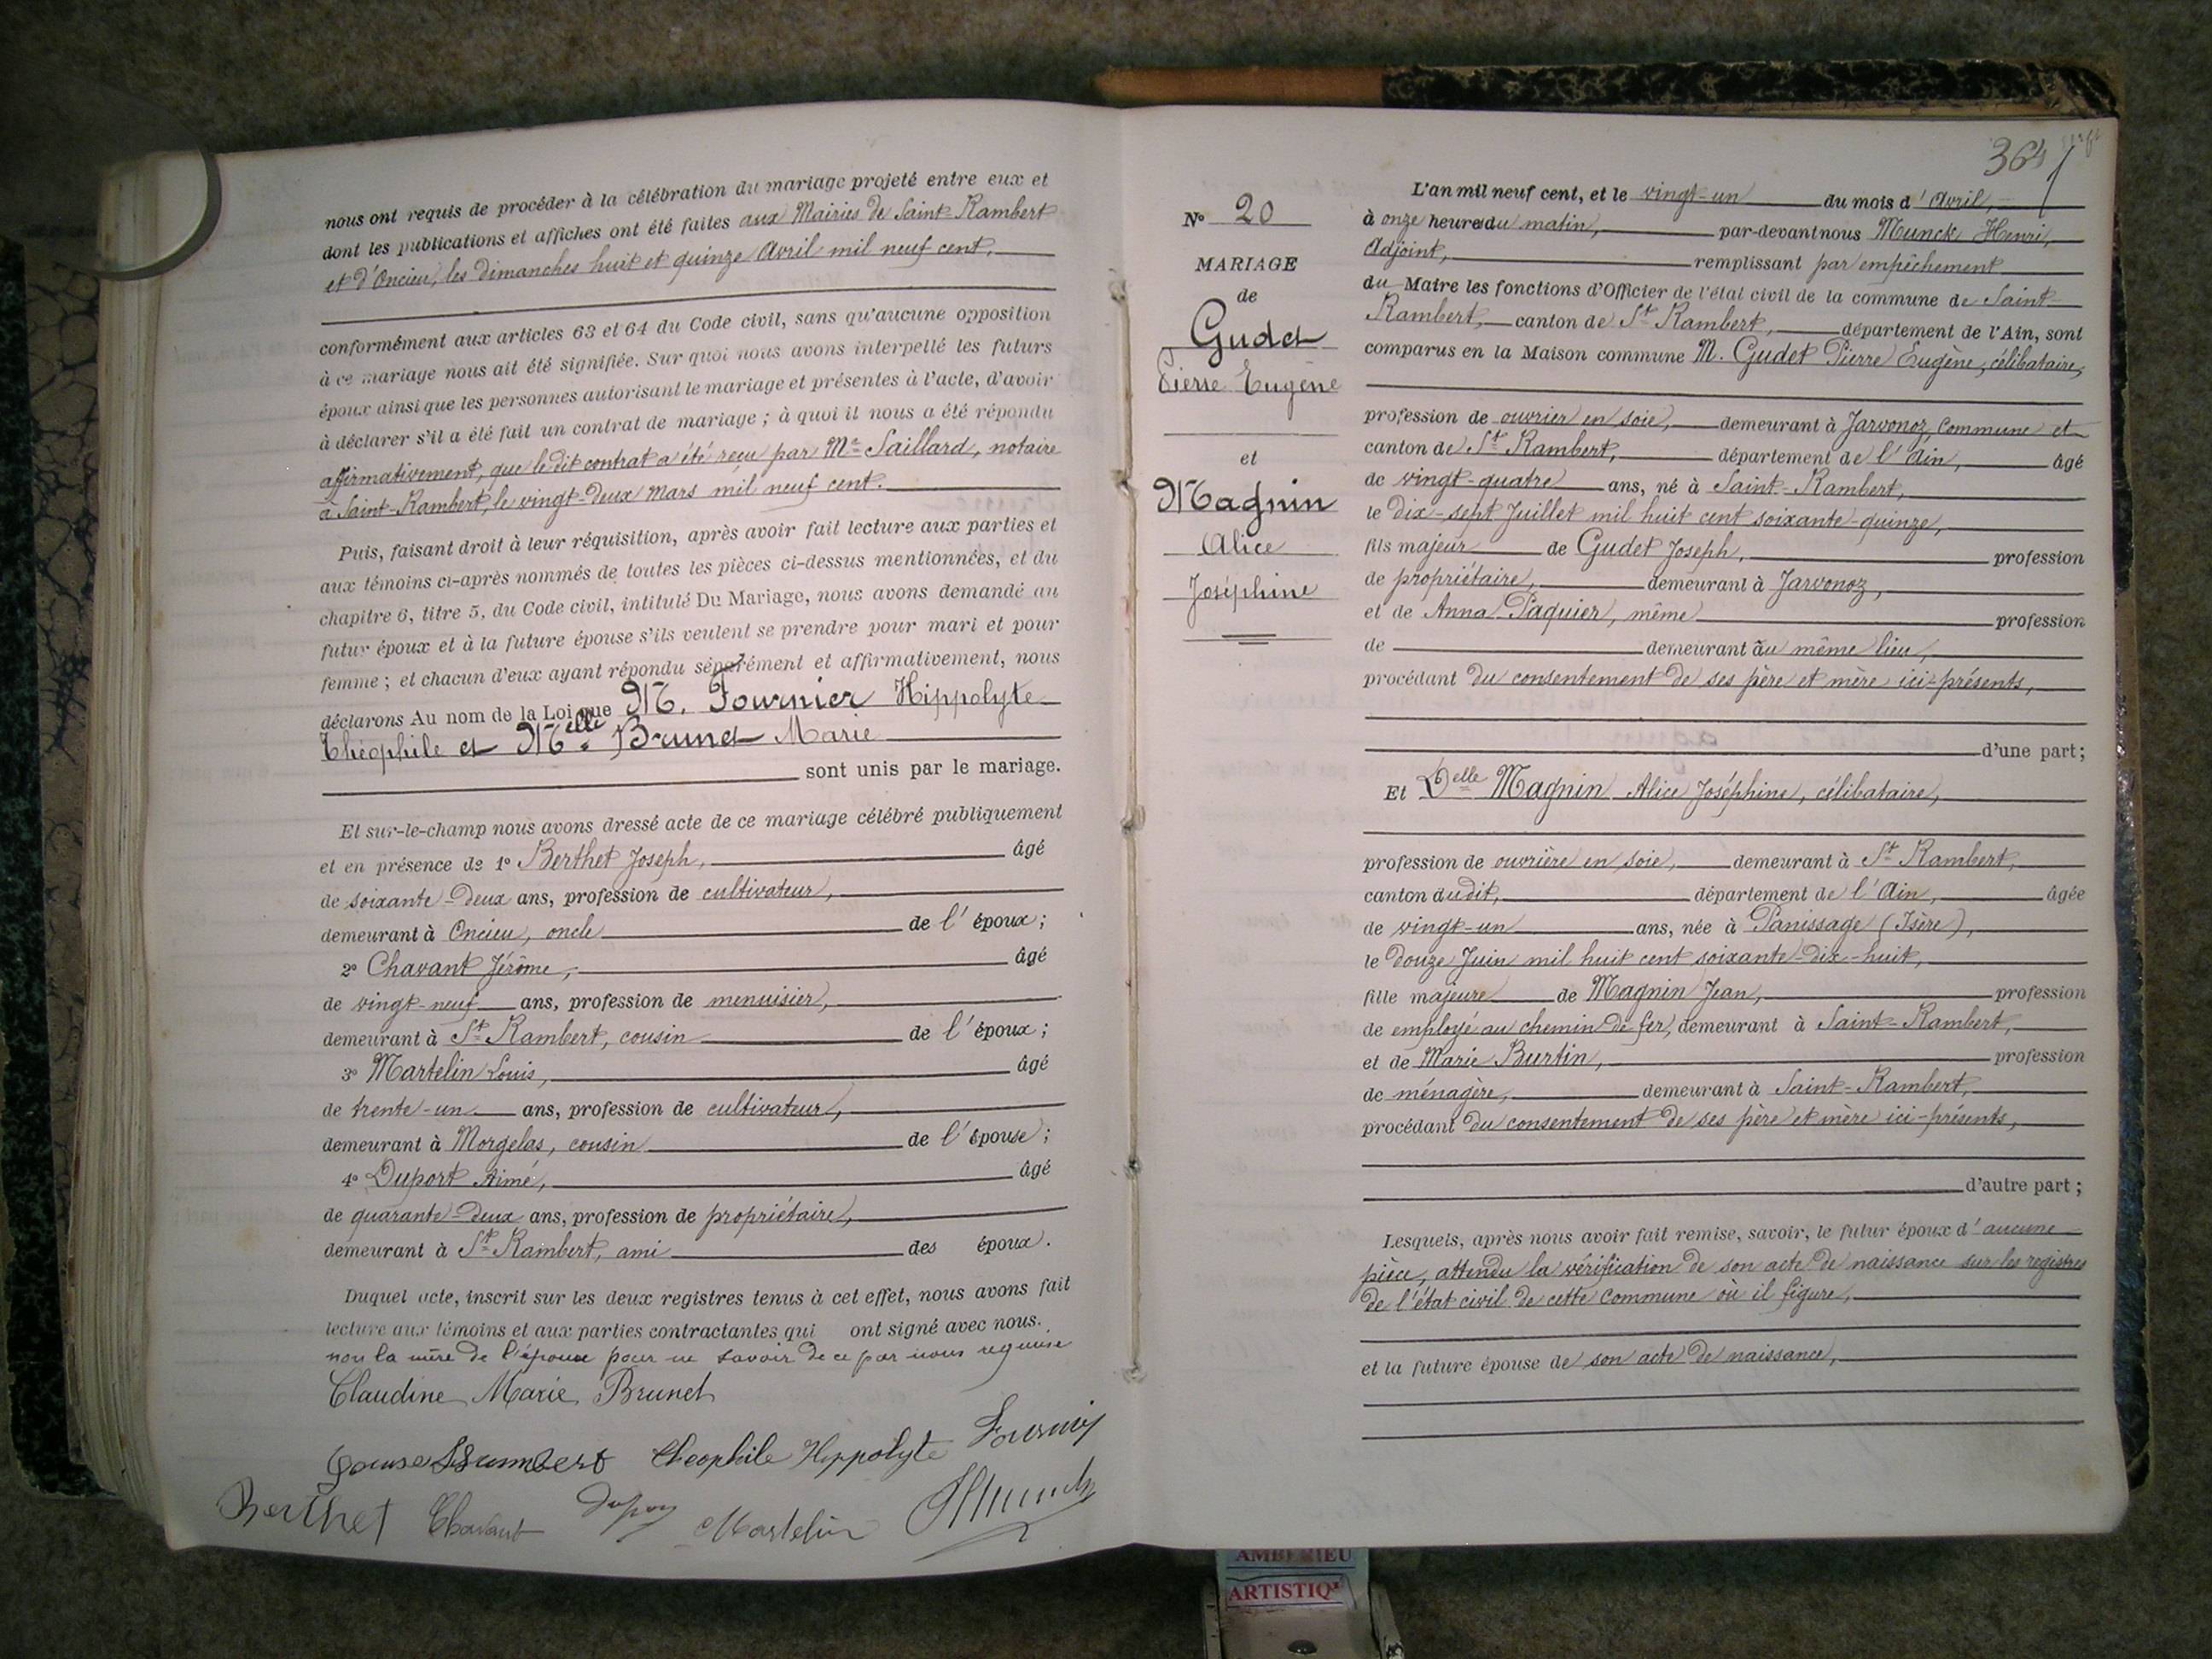 nous ont requis de procéder à la célébration du mariage projeté entre eux et
dont les publications et affiches ont été faites aux Mairies de Saint-Rambert
et d'Oncieu, les dimanches huit et quinze Avril mil neuf cent.
conformément aux articles 63 et 64 du Code civil, sans qu'aucune opposition
à ce mariage nous ait été signifiée. Sur quoi nous avons interpellé les futurs
époux ainsi que les personnes autorisant le mariage et présentes à l'acte, d'avoir
à déclarer s'il a été fait un contrat de mariage ; à quoi il nous a été répondu
affirmativement, que le dit contrat a été reçu par Me Saillard, notaire
à Saint-Rambert, le vingt-deux Mars mil neuf cent.
Puis, faisant droit à leur réquisition, après avoir fait lecture aux parties et
aux témoins ci-après nommés de toutes les pièces ci-dessus mentionnées, et du
chapitre 6, titre 5, du Code civil, intitulé Du Mariage, nous avons demandé au
futur époux et à la future épouse s'ils veulent se prendre pour mari et pour
femme ; et chacun d'eux ayant répondu séparément et affirmativement, nous
déclarons Au nom de la Loi que M. Fournier Hippolyte
Théophile et Melle Brunet Marie
sont unis par le mariage.
Et sur-le-champ nous avons dressé acte de ce mariage célébré publiquement
et en présence de 1º Berthet Joseph, âgé
de soixante-deux ans, profession de cultivateur,
demeurant à Oncieu, oncle de l'époux ;
2º Chavant Jérôme, âgé
de vingt-neuf ans, profession de menuisier,
demeurant à St Rambert, cousin de l'époux ;
3º Martelin Louis, âgé
de trente-un ans, profession de cultivateur,
demeurant à Morgelas, cousin de l'épouse ;
4º Duport Aimé, âgé
de quarante-deux ans, profession de propriétaire,
demeurant à St Rambert, ami des époux.
Duquel acte, inscrit sur les deux registres tenus à cet effet, nous avons fait
lecture aux témoins et aux parties contractantes qui ont signé avec nous.
non la mère de l'époux pour ne savoir de ce par nous requise
Claudine Marie Brunet
Théophile Hippolyte Fournier
Berthet Chavant Martelin HMunck
364
Nº 20
MARIAGE
de
Gudet
Pierre Eugène
et
Magnin
Alice
Joséphine
L'an mil neuf cent, et le vingt-un du mois d'Avril,
à onze heures du matin, par-devant nous Munck Henri,
Adjoint, remplissant par empêchement
du Maire les fonctions d'Officier de l'état civil de la commune de Saint-
Rambert, canton de St Rambert, département de l'Ain, sont
comparus en la Maison commune M. Gudet Pierre Eugène, célibataire,
profession de ouvrier en soie, demeurant à Javonoz, Commune et
canton de St Rambert, département de l'Ain, âgé
de vingt-quatre ans, né à Saint-Rambert,
le dix-sept Juillet mil huit cent soixante-quinze,
fils majeur de Gudet Joseph, profession
de propriétaire, demeurant à Javonoz,
et de Anna Paquier, même profession
de demeurant au même lieu,
procédant du consentement de ses père et mère ici-présents,
d'une part ;
Et Delle Magnin Alice Joséphine, célibataire,
profession de ouvrière en soie, demeurant à St Rambert,
canton du dit, département de l'Ain, âgée
de vingt-un ans, née à Panissage (Isère),
le douze Juin mil huit cent soixante-dix-huit,
fille majeure de Magnin Jean, profession
de employé au chemin de fer, demeurant à Saint-Rambert,
et de Marie Burtin, profession
de ménagère, demeurant à Saint-Rambert,
procédant du consentement de ses père et mère ici-présents,
d'autre part ;
Lesquels, après nous avoir fait remise, savoir, le futur époux d'aucune
pièce, attendu la vérification de son acte de naissance sur les registres
de l'état civil de cette Commune où il figure,
et la future épouse de son acte de naissance,
AMBERIEU
ARTISTIQ